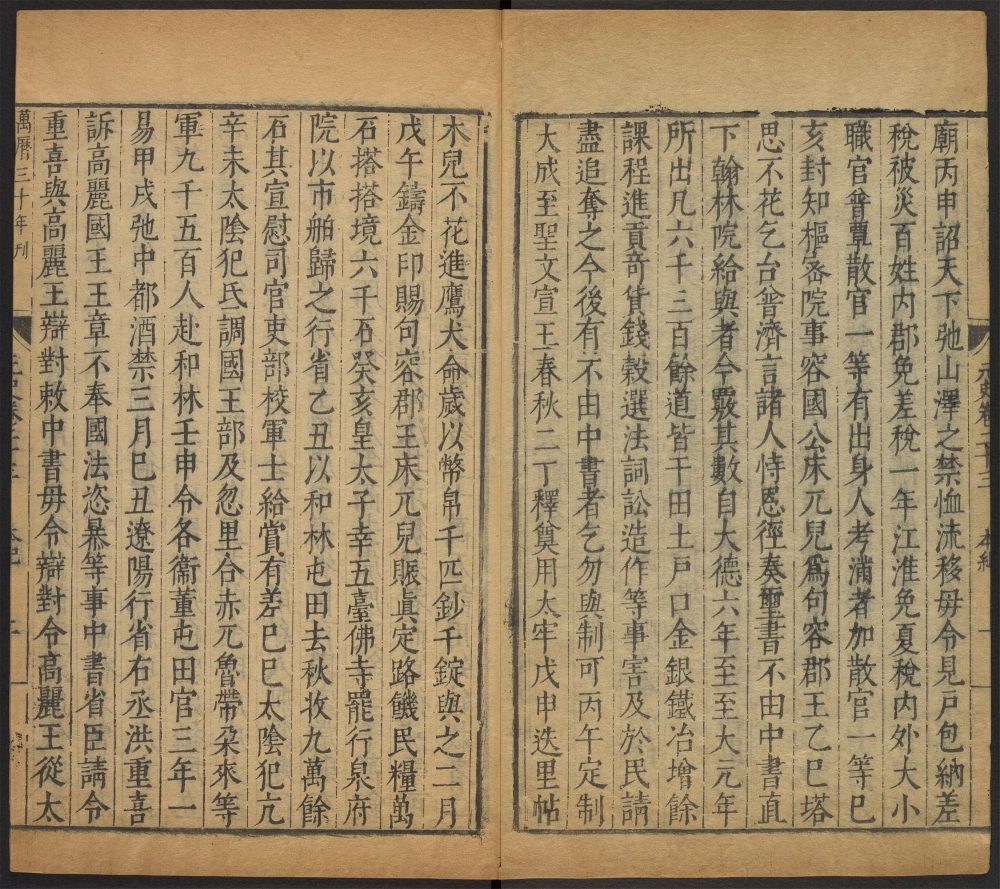 廟丙申詔天下弛山澤之禁恤流移毋令見戶包納差
稅被災百姓內郡免差稅一年江淮免夏稅內外大小
職官普覃散官一等有出身人考滿者加散官一等巳
亥封知樞密院事容國公床兀兒爲句容郡王乙巳塔
思不花乞台普濟言諸人恃恩徑奏璽書不由中書直
下翰林院給與者今覈其數自大德六年至至大元年
所出凡六千三百餘道皆干田土戶口金銀鐵冶增餘
課程進貢奇貨錢穀選法詞訟造作等事害及於民請
盡追奪之今後有不由中書者乞勿與制可丙午定制
大成至聖文宣王春秋二丁釋奠用太牢戊申迭里帖
木兒不花進鷹犬命歲以幣帛千匹鈔千錠與之二月
戊午鑄金印賜句容郡王床兀兒賑眞定路饑民糧萬
石搭搭境六千石癸亥皇太子幸五臺佛寺罷行泉府
院以市舶歸之行省乙丑以和林屯田去秋收九萬餘
石其宣慰司官吏部校軍士給賞有差巳巳太陰犯亢
辛未太陰犯氐調國王部及忽里合赤兀魯帶朶來等
軍九千五百人赴和林壬申令各衞董屯田官三年一
易甲戌弛中都酒禁三月巳丑遼陽行省右丞洪重喜
訴高麗國王王章不奉國法恣暴等事中書省臣請令
重喜與高麗王辯對敕中書毋令辯對令高麗王從太
萬曆三十年刊